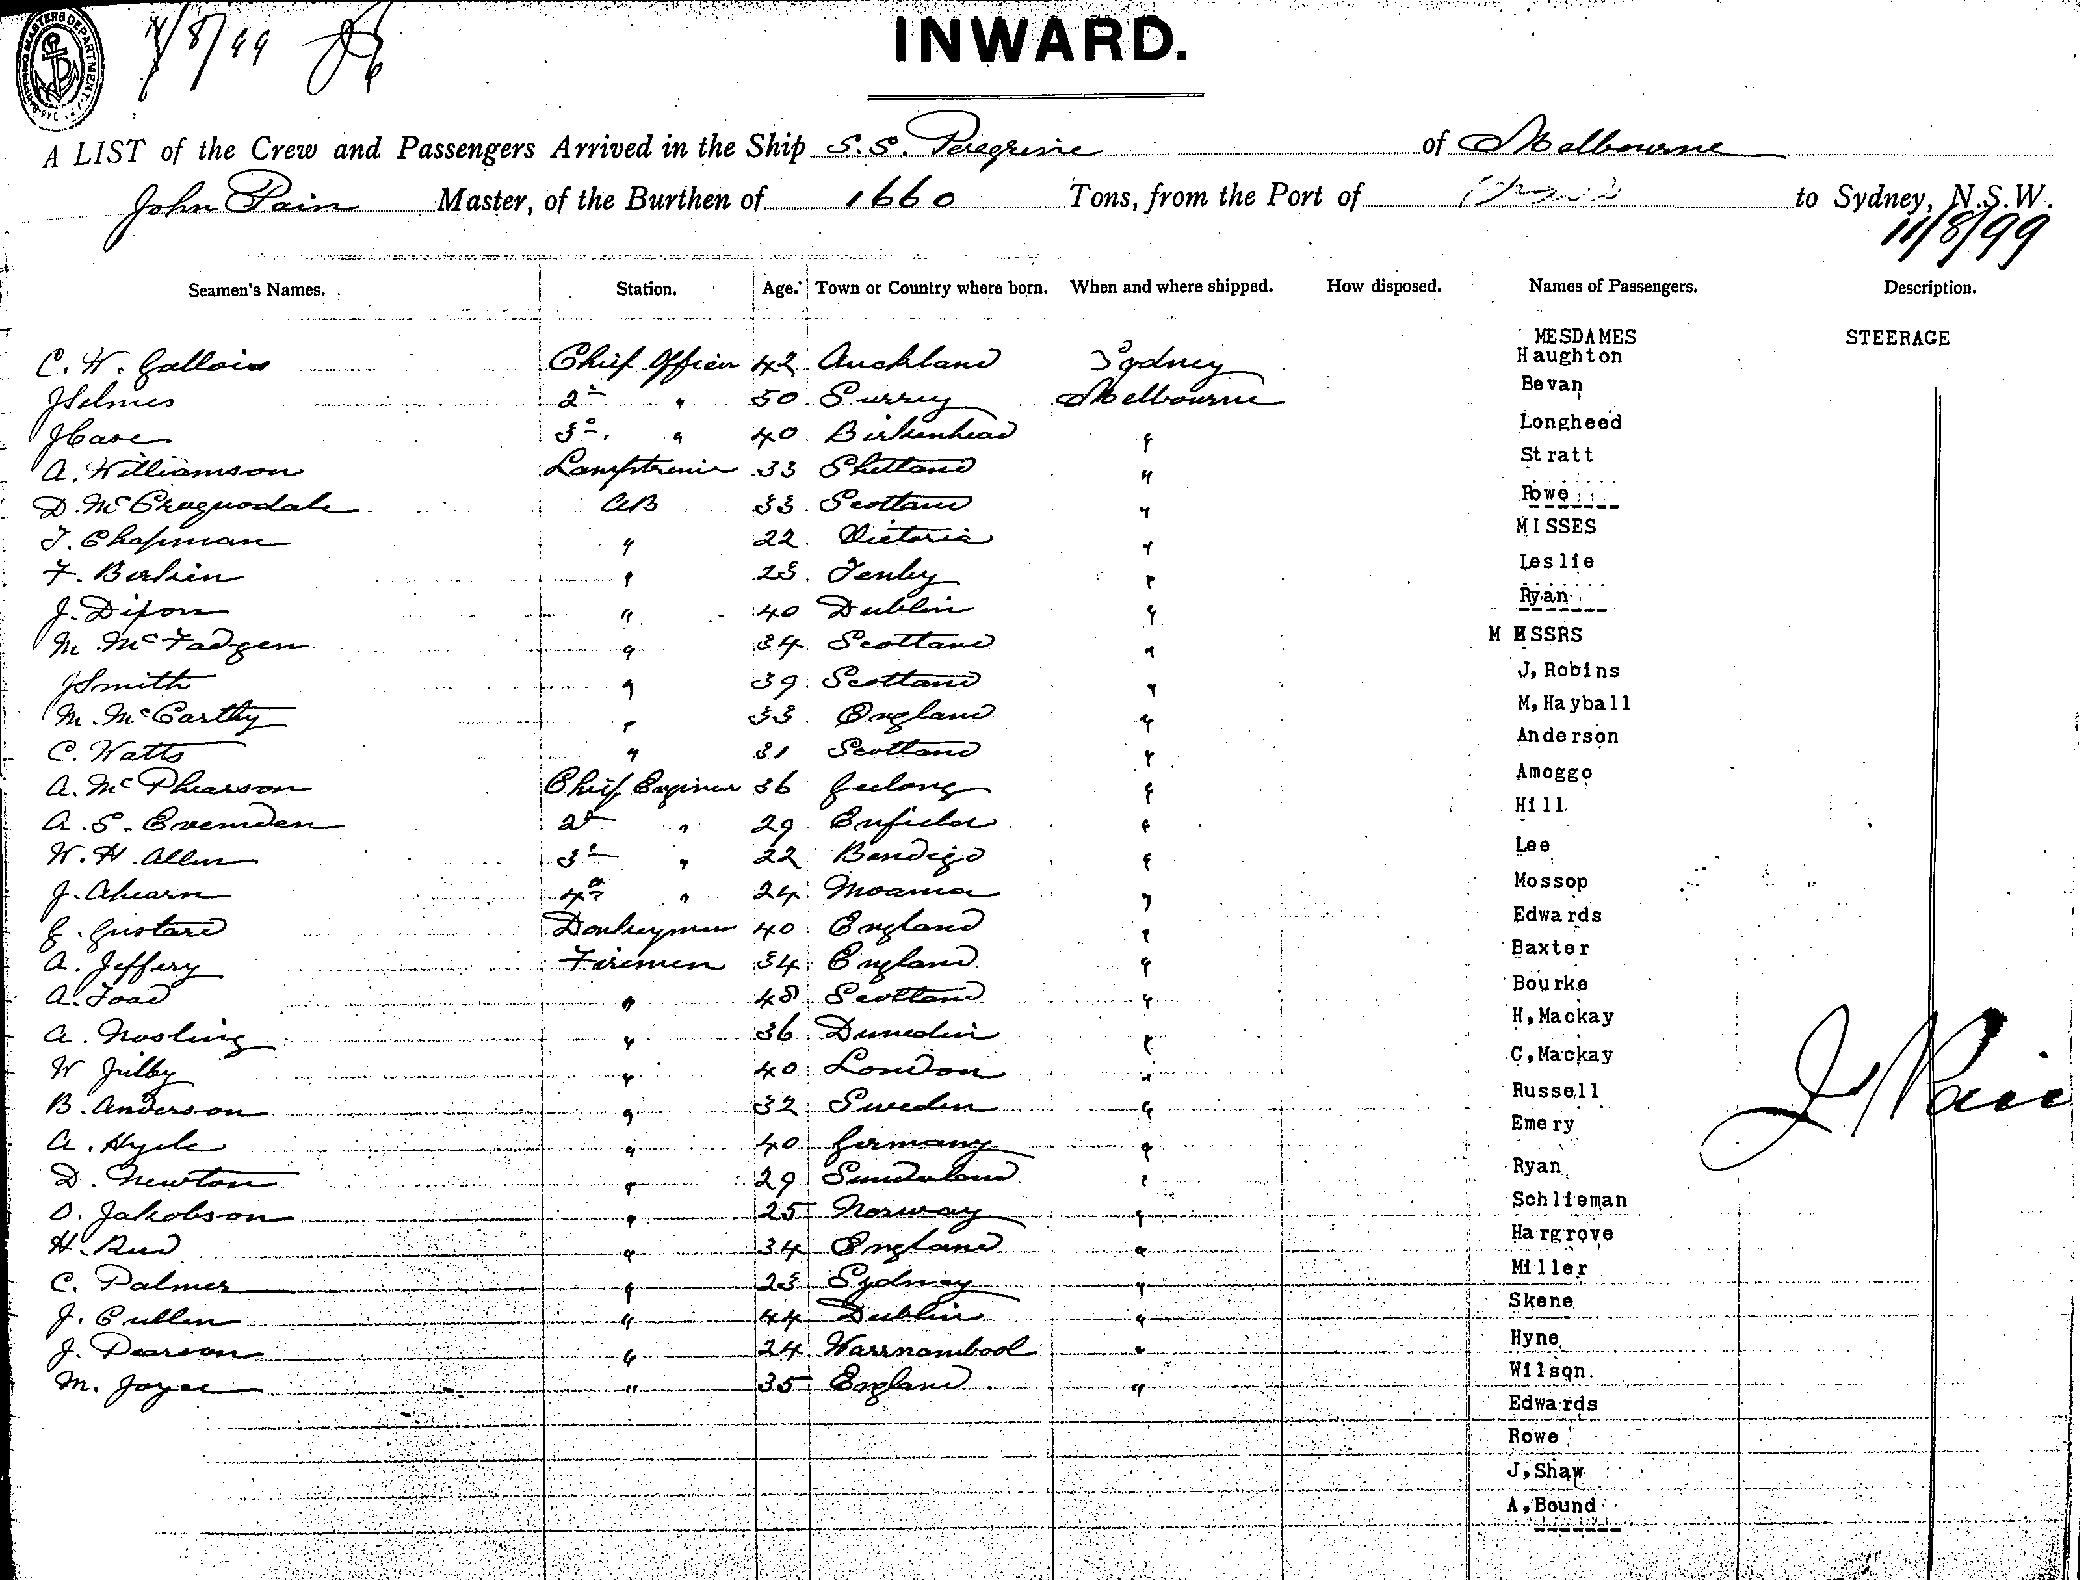 11/8/99
INWARD.
A LIST of the Crew and Passengers Arrived in the Ship S.S. Peregrine of Melbourne
John Pain Master, of the Burthen of 1660 Tons, from the Port of to Sydney, N.S.W.
11/8/99
Seamen's Names. Station. Age. Town or Country where born. When and where shipped. How disposed. Names of Passengers. Description.
MESDAMES STEERAGE
C. W. Gallois Chief Officer 42 Auckland Sydney Haughton
J Selmes 2nd " 50 Surrey Melbourne Bevan
J Case 3rd " 40 Birkenhead " Longheed
A. Williamson Lamptrimer 33 Shetland " Stratt
D. McCroquodale AB 33 Scotland " Rowe
T. Chapman " 22 Victoria " MISSES
F. Birkin " 23 Tenby " Leslie
J. Dixon " 40 Dublin " Ryan
M. McFadgen " 34 Scotland " MESSRS
J Smith " 39 Scotland " J,Robins
M. McCarthy " 33 England " M,Hayball
C. Watts " 31 Scotland " Anderson
A. McPhearson Chief Engineer 36 Geelong " Amoggo
A. S. Evemden 2nd " 29 Enfield " Hill
W. H. Allen 3rd " 22 Bendigo " Lee
J. Ahearn 4th " 24 Moama " Mossop
G. Gustard Donkeyman 40 England " Edwards
A. Jeffery Firemen 34 England " Baxter
A. Toad " 48 Scotland " Bourke
A. Nosling " 36 Dunedin " H,Mackay
W Jilby " 40 London " C,Mackay
B. Anderson " 32 Sweden " Russell
A. Hyde " 40 Germany " Emery
D. Newton " 29 Sunderland " Ryan
O. Jakobson " 25 Norway " Schlieman
H. " 34 England " Hargrove
C. Palmer " 23 Sydney " Miller
J. Cullen " 44 Dublin " Skene
J. Pearson " 24 Warrnambool " Hyne
M. Joyce " 35 England " Wilson
Edwards
Rowe
J,Shaw
A,Bound
J Pain